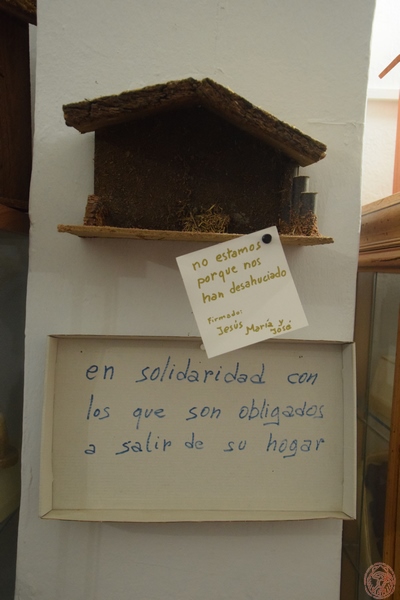 no estamos
porque nos
han desahuciado
Firmado:
Jesús María y
José
en solidaridad con
los que son obligados
a salir de su hogar